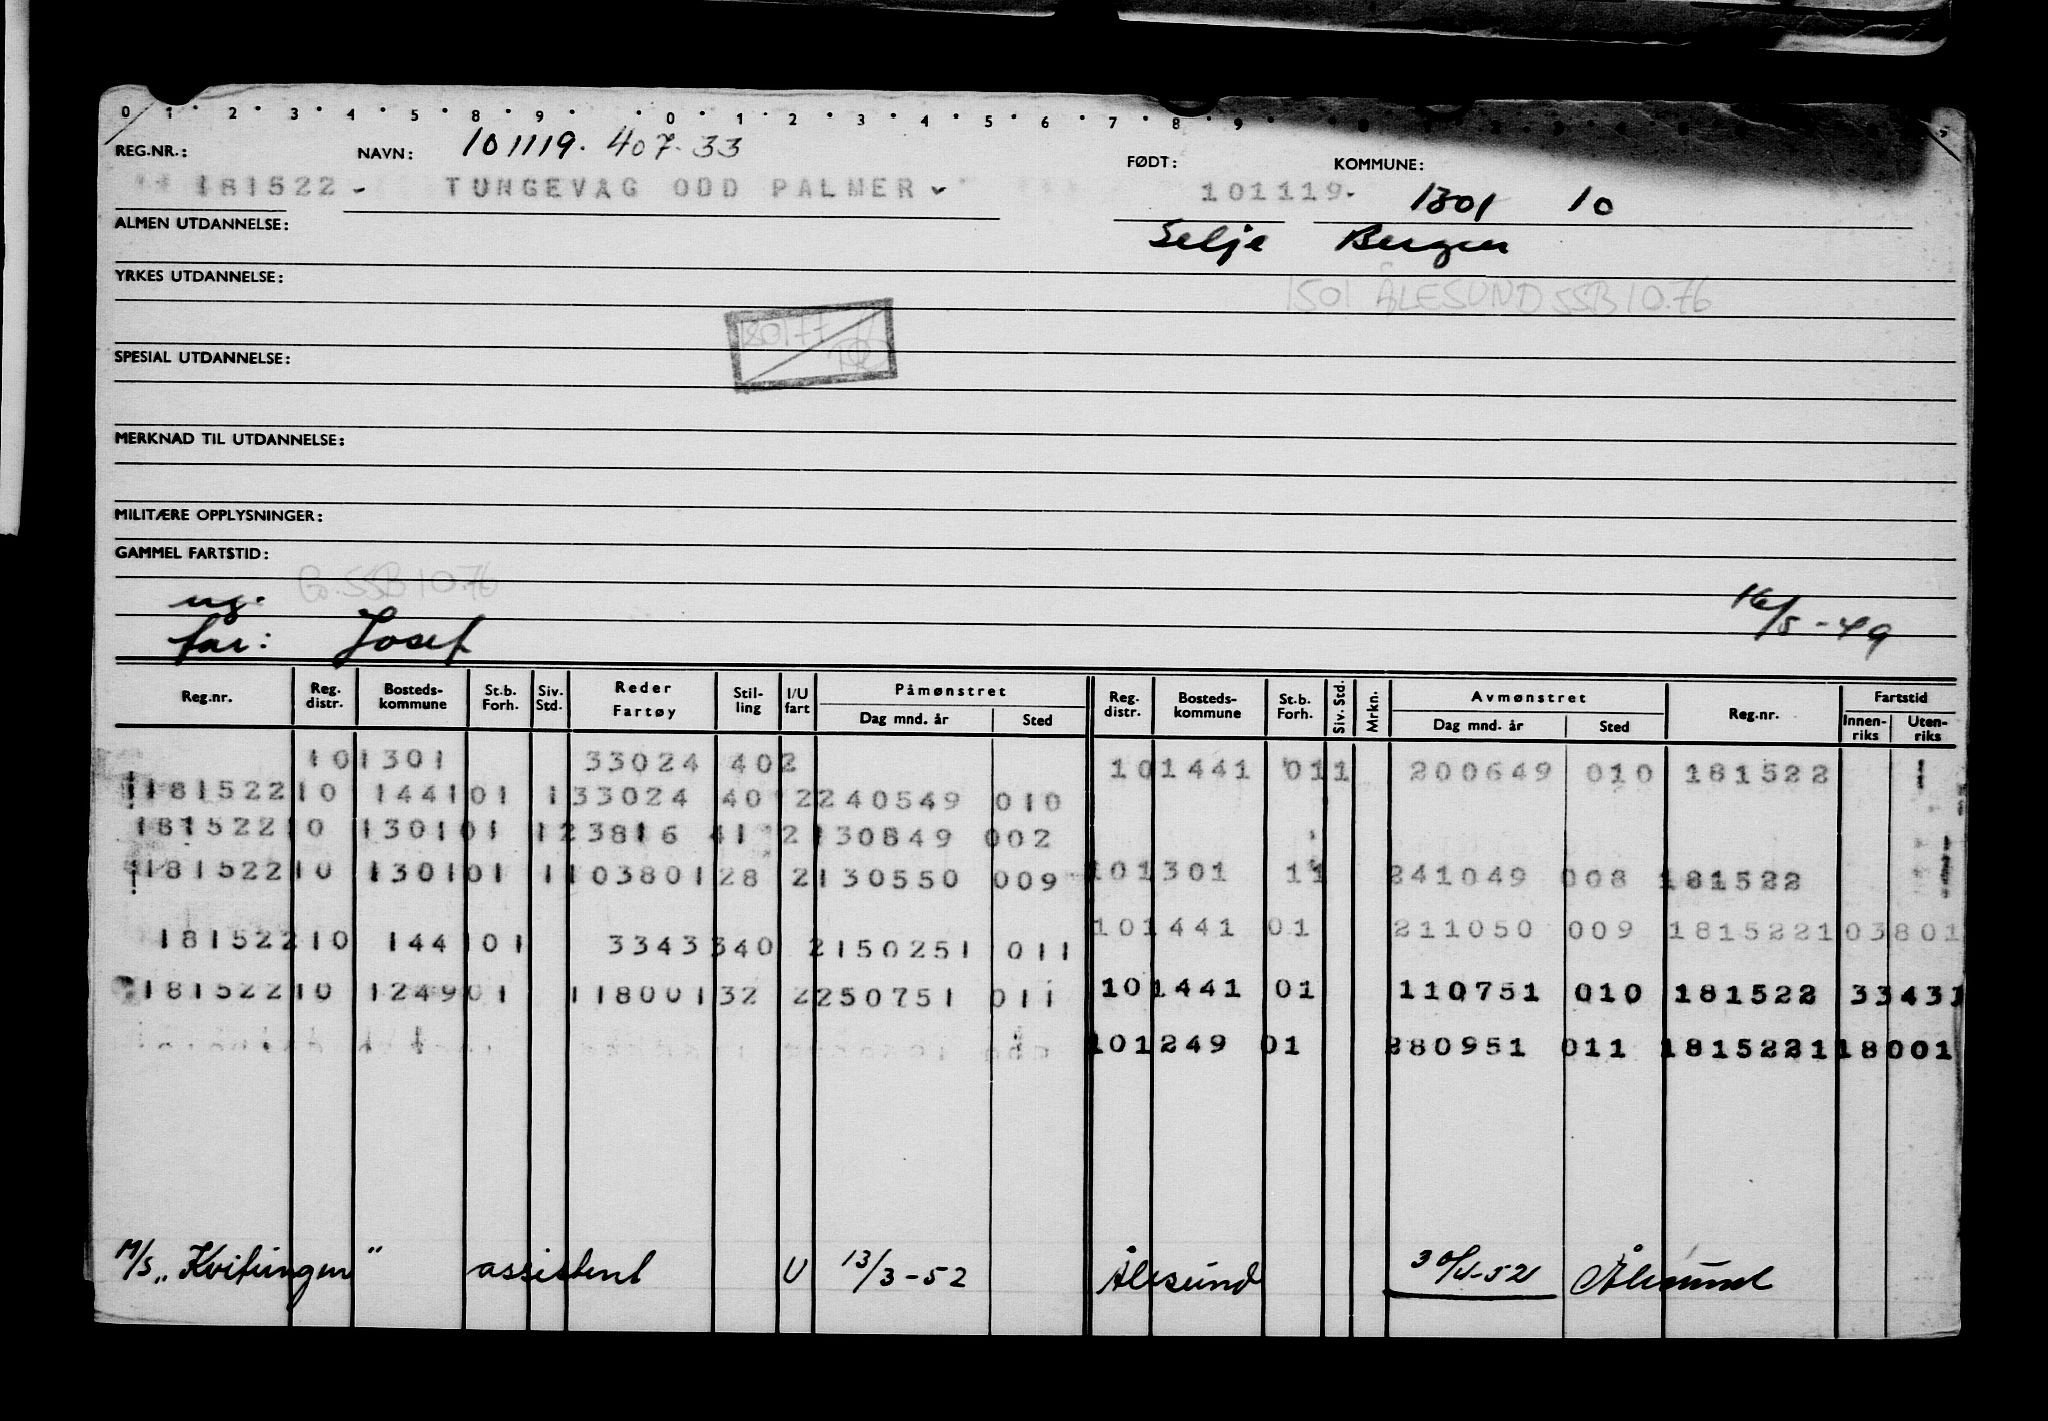 0 1 2 3 4 5 8 9 0 1 2 3 4 5 6 7 8 9
REG.NR.: NAVN: 101119. 407.33 FØDT: KOMMUNE:
181522 TUNGEVAG ODD PALMER 101119 1301 10
ALMEN UTDANNELSE: Selje Bergen
YRKES UTDANNELSE: 1501 ÅLESUND SSB 10.76
SPESIAL UTDANNELSE:
MERKNAD TIL UTDANNELSE:
MILITÆRE OPPLYSNINGER:
GAMMEL FARTSTID:
SSB 10.76
ug. 16/5-49
far: Josef
Reg.nr. Reg. distr. Bosteds-kommune St.b. Forh. Siv. Std. Reder Fartøy Stil-ling I/U fart Påmønstret Dag mnd. år Sted Reg. distr. Bosteds-kommune St.b. Forh. Siv. Std. Mrkn. Avmønstret Dag mnd. år Sted Reg.nr. Fartstid Innen-riks Uten-riks
101301 33024 402 101441 011 200649 010 181522
18152210 144101 133024 40 2240549 010
18152210 130101 123816 41 2130849 002
18152210 130101 110380128 2130550 009 101301 11 241049 008 181522
18152210 144101 3343340 2150251 011 101441 01 211050 009 181522103801
18152210 124901 11800132 2250751 011 101441 01 110751 010 181522 33431
101249 01 280951 011 181522118001
M/S „Kvitungen" assistent U 13/3-52 Ålesund 30/ -52 Ålesund